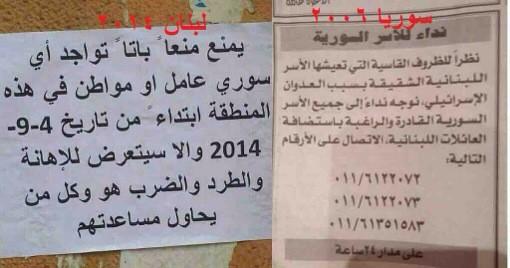 لبنان ٢٠١٤
يمنع منعاً باتاً تواجد أي
سوري عامل او مواطن في هذه
المنطقة ابتداءً من تاريخ 4-9-
2014 والا سيتعرض للإهانة
والطرد والضرب هو وكل من
يحاول مساعدتهم
سوريا ٢٠٠٦
نداء للأسر السورية
نظراً للظروف القاسية التي تعيشها الأسر
اللبنانية الشقيقة بسبب العدوان
الإسرائيلي، نوجه نداءً إلى جميع الأسر
السورية القادرة والراغبة باستضافة
العائلات اللبنانية: الاتصال على الأرقام
التالية:
٠١١/٦١٢٢٠٧٢
٠١١/٦١٢٢٠٧٣
٠١١/٦١٣٥١٥٨٣
على مدار ٢٤ ساعة